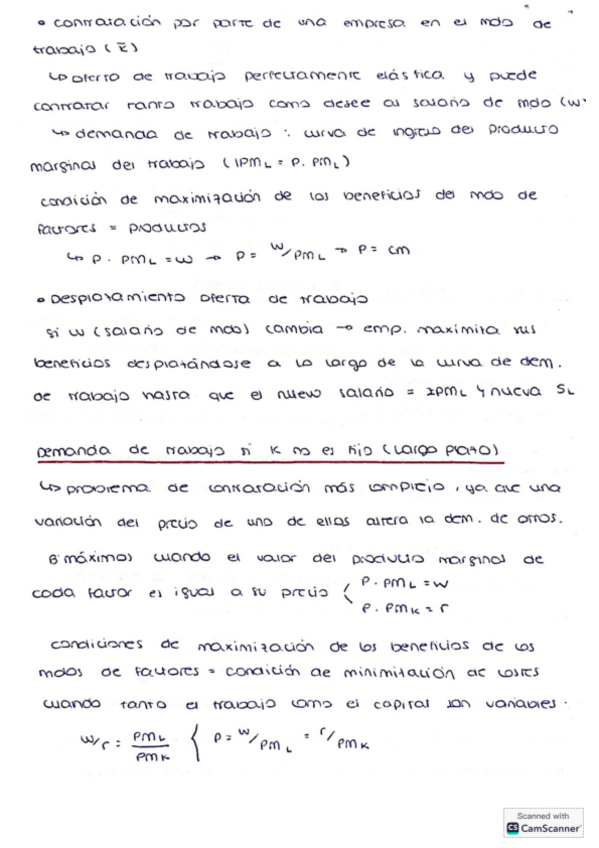 • contratación por parte de una empresa en el mdo de
trabajo (Ē)
↳ oferta de trabajo perfectamente elástica y puede
contratar tanto trabajo como desee al salario de mdo (w
↳ demanda de trabajo : curva de ingreso del producto
marginal del trabajo (IPM_L = P. PM_L)
condición de maximización de los beneficios del mdo de
factores = productos
↳ P. PM_L = w → P = w/PM_L → P = CM
• Desplazamiento oferta de trabajo
si w (salario de mdo) cambia → emp. maximiza sus
beneficios desplazándose a lo largo de la curva de dem.
de trabajo hasta que el nuevo salario = IPM_L y nueva S_L
Demanda de trabajo si K no es fijo (largo plazo)
↳ problema de contratación más complejo, ya que una
variación del precio de uno de ellos altera la dem. de otros.
B máximos cuando el valor del producto marginal de
cada factor es igual a su precio { P. PM_L = w
P. PM_K = r
condiciones de maximización de los beneficios de los
mdos de factores = condición de minimización de costes
cuando tanto el trabajo como el capital son variables.
w/r = PM_L/PM_K { P = w/PM_L = r/PM_K
Scanned with
CS CamScanner